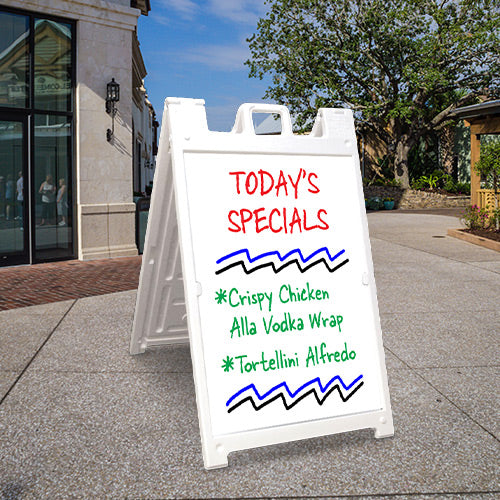 TODAY'S
SPECIALS
*Crispy Chicken
Alla Vodka Wrap
*Tortellini Alfredo